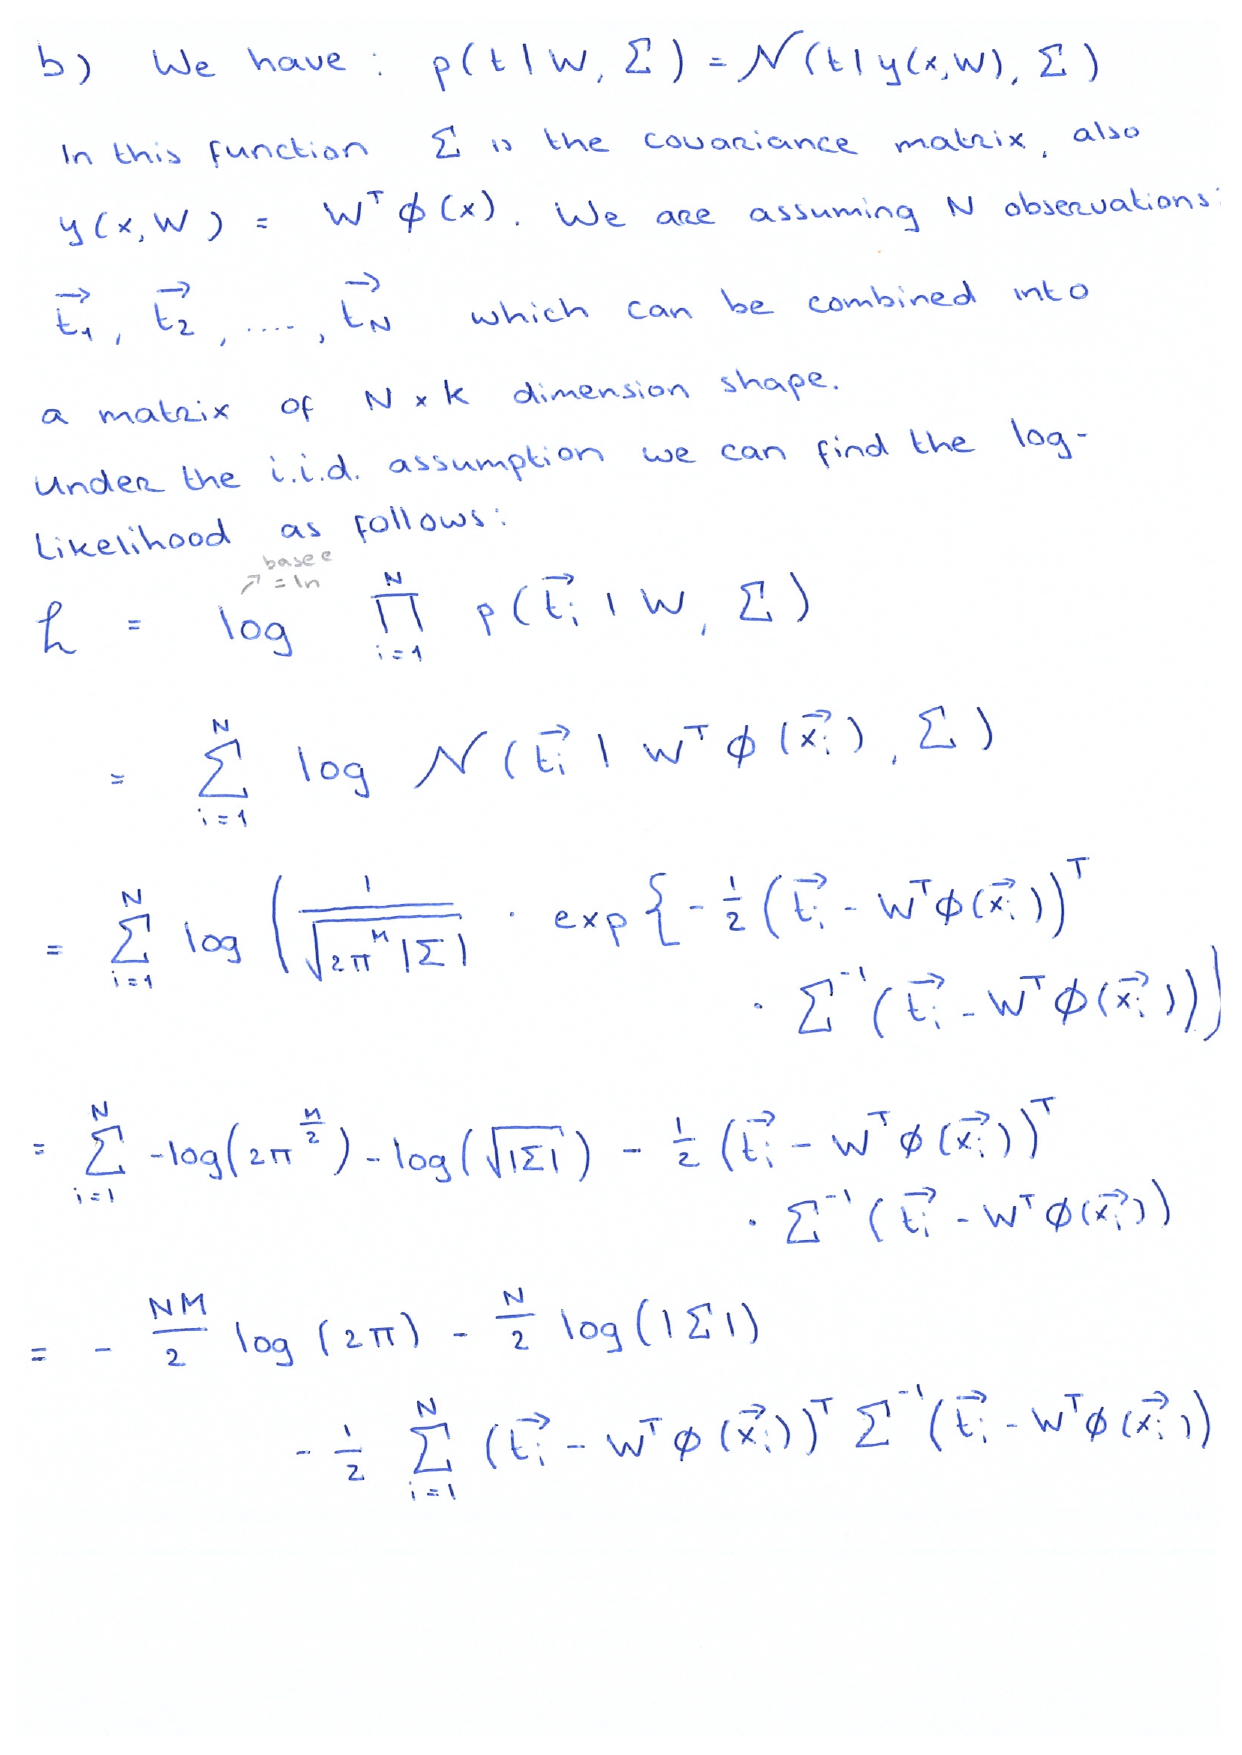 b) We have : p(t | W, Σ) = N(t | y(x,W), Σ)
In this function Σ is the covariance matrix, also
y(x,W) = Wᵀ ϕ(x). We are assuming N observations:
t⃗₁, t⃗₂, ...., t⃗_N which can be combined into
a matrix of N × K dimension shape.
Under the i.i.d. assumption we can find the log-
likelihood as follows:
base e
↗ = ln
L = log ∏_{i=1}^{N} p(t⃗ᵢ | W, Σ)
= Σ_{i=1}^{N} log N(t⃗ᵢ | Wᵀ ϕ(x⃗ᵢ), Σ)
= Σ_{i=1}^{N} log ( 1/√(2π^M |Σ|) · exp{ -½ (t⃗ᵢ - Wᵀϕ(x⃗ᵢ))ᵀ
· Σ⁻¹(t⃗ᵢ - Wᵀϕ(x⃗ᵢ)))
= Σ_{i=1}^{N} -log(2π^{M/2}) - log(√|Σ|) - ½ (t⃗ᵢ - Wᵀϕ(x⃗ᵢ))ᵀ
· Σ⁻¹(t⃗ᵢ - Wᵀϕ(x⃗ᵢ))
= - NM/2 log(2π) - N/2 log(|Σ|)
- ½ Σ_{i=1}^{N} (t⃗ᵢ - Wᵀϕ(x⃗ᵢ))ᵀ Σ⁻¹(t⃗ᵢ - Wᵀϕ(x⃗ᵢ))